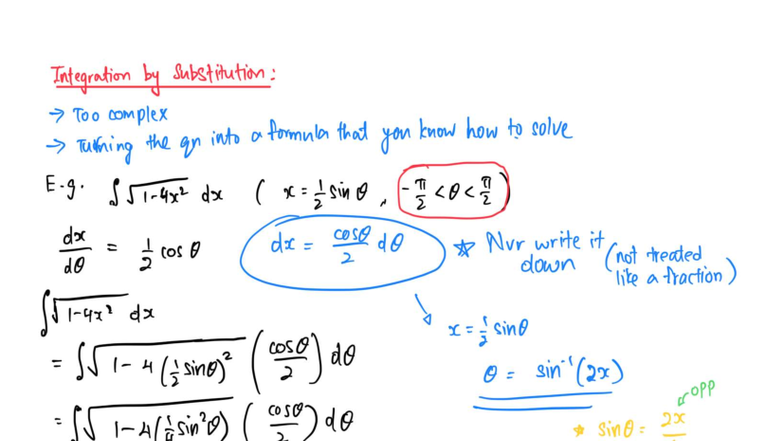 Integration by Substitution:
→ Too complex
→ Turning the qn into a formula that you know how to solve
E.g. ∫√(1-4x²) dx ( x = 1/2 sin θ , -π/2 < θ < π/2 )
dx/dθ = 1/2 cos θ
dx = cosθ/2 dθ
★ Nvr write it down (not treated like a fraction)
∫√(1-4x²) dx
= ∫√(1 - 4(1/2 sinθ)²) (cosθ/2) dθ
= ∫√(1-4(1/4 sin²θ)) (cosθ/2) dθ
x = 1/2 sinθ
θ = sin⁻¹(2x)
opp
* sinθ = 2x